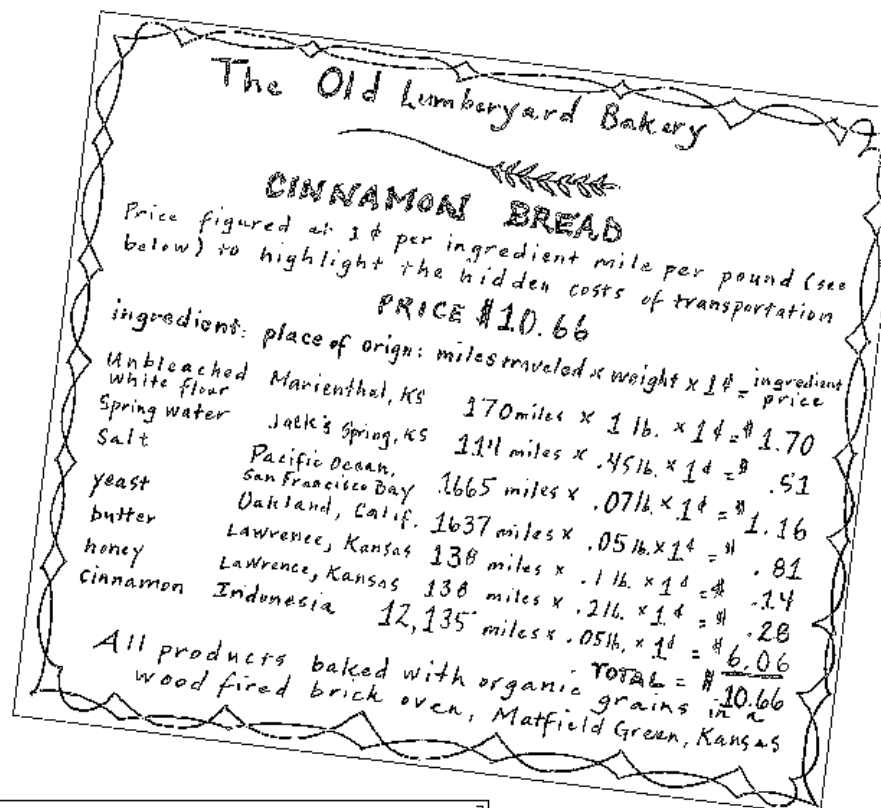 The Old Lumberyard Bakery
CINNAMON BREAD
Price figured at 1¢ per ingredient mile per pound (see
below) to highlight the hidden costs of transportation
PRICE $10.66
ingredient: place of orign: miles traveled x weight x 1¢ = ingredient price
Unbleached white flour Marienthal, KS 170 miles x 1 lb. x 1¢ = $ 1.70
Spring water Jack's Spring, KS 114 miles x .45 lb. x 1¢ = $ .51
Salt Pacific Ocean, San Francisco Bay 1665 miles x .07 lb. x 1¢ = $ 1.16
yeast Oakland, Calif. 1637 miles x .05 lb. x 1¢ = $ .81
butter Lawrence, Kansas 138 miles x .1 lb. x 1¢ = $ .14
honey Lawrence, Kansas 138 miles x .2 lb. x 1¢ = $ .28
cinnamon Indonesia 12,135 miles x .05 lb. x 1¢ = $ 6.06
TOTAL = $ 10.66
All products baked with organic grains in a
wood fired brick oven, Matfield Green, Kansas